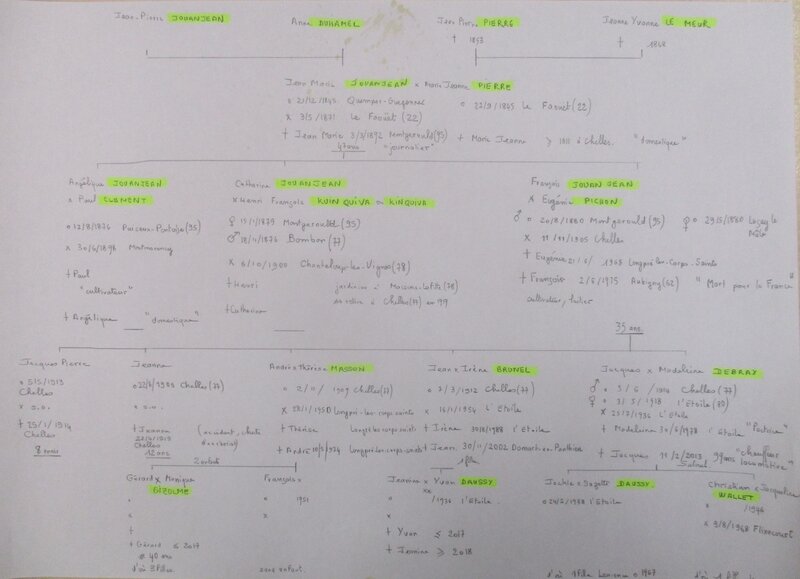 Jean-Pierre JOUANJEAN
Anne DUHAMEL
Jean Pierre PIERRE
† 1853
Jeanne Yvonne LE MEUR
† 1848
Jean Marie JOUANJEAN x Marie Jeanne PIERRE
o 27/12/1845 Quemper-Guézennec o 22/9/1845 Le Faouët (22)
x 3/5/1871 Le Faouët (22)
† Jean Marie 3/3/1892 Montgeroult (95) † Marie Jeanne ≥ 1911 à Chelles "domestique"
47 ans "journalier"
Angélique JOUANJEAN
x Paul CLEMENT
o 12/8/1876 Puiseux-Pontoise (95)
x 30/6/1898 Montmorency
† Paul
"cultivateur"
† Angélique "domestique"
Catherine JOUANJEAN
x Henri François KUIN QUIVA ou KINQUIVA
♀ 15/11/1879 Montgeroult (95)
♂ 18/11/1876 Bombon (77)
x 6/10/1900 Chanteloup-les-Vignes (78)
† Henri jardinier à Maisons-Lafitte (78)
à Chelles (77) en 1919
† Catherine
François JOUANJEAN
x Eugénie PICHON
♂ o 20/8/1880 Montgeroult (95) ♀ o 29/5/1880
x 11/11/1905 Chelles
† Eugénie 21/6/1965 Longpré-les-Corps-Saints
† François 2/6/1915 Aubigny (62) "Mort pour la France"
cultivateur, laitier
35 ans
Jacques Pierre
o 5/5/1913
Chelles
x s.o.
† 25/1/1914
Chelles
8 mois
Jeanne
Chelles (77)
x s.o.
† Jeanne (accident, chute
Chelles d'escalier)
12 ans
André x Thérèse MASSON
o 2/11/1909 Chelles (77)
Longpré-les-corps-saints
† Thérèse Longpré-les-corps-saints
† André Longpré-les-corps-saints
2 enfants
Jean x Irène BRUNEL
o 7/3/1912 Chelles (77)
x 16/11/1934 L'Etoile
† Irène 30/8/1988 L'Etoile
† Jean 30/11/2002 Domart-en-Ponthieu
1 fille
Jacques x Madeleine DEBRAY
♂ o 3/6/1914 Chelles (77)
♀ o 3/3/1918 L'Etoile (80)
x 25/7/1936 L'Etoile
† Madeleine 30/6/1978 L'Etoile
† Jacques 11/2/2013 99 ans "chauffeur
locomotive"
Gérard x Monique
GIZOLME
o
x
†
† Gérard ≤ 2017
≠ 40 ans
d'où 3 filles
François x
o 1951
x
sans enfant
Jeanine x Yvan DAUSSY
o /1936 l'Etoile
x
† Yvan ≤ 2017
† Jeanine ≥ 2018
DAUSSY
o 24/2/1938 l'Etoile
d'où 1 fille o 1967
Christian x Jacqueline
WALLET
o /1946
x 9/8/1968 Flixecourt
d'où 1